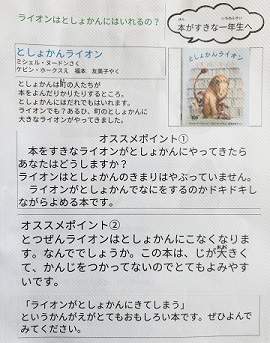 ライオンはとしょかんにはいれるの？
本がすきな一年生へ
ほん
いちねんせい
としょかんライオン
ミシェル・ヌードンさく
ケビン・ホークスえ　福本　友美子やく
としょかんは町の人たちが
本をよんだりかりたりするところ。
としょかんにはだれでもはいれます。
ライオンでも？あるひ、町のとしょかんに
大きなライオンがやってきました。
としょかんライオン
オススメポイント①
本をすきなライオンがとしょかんにやってきたら
あなたはどうしますか？
ライオンはとしょかんのきまりはやぶっていません。
ライオンがとしょかんでなにをするのかドキドキし
ながらよめる本です。
オススメポイント②
とつぜんライオンはとしょかんにこなくなりま
す。なんででしょうか。この本は、じが大き
くて、かんじをつかってないのでとてもよみやす
いです。
「ライオンがとしょかんにきてしまう」
というかんがえがとてもおもしろい本です。ぜひよんで
みてください。